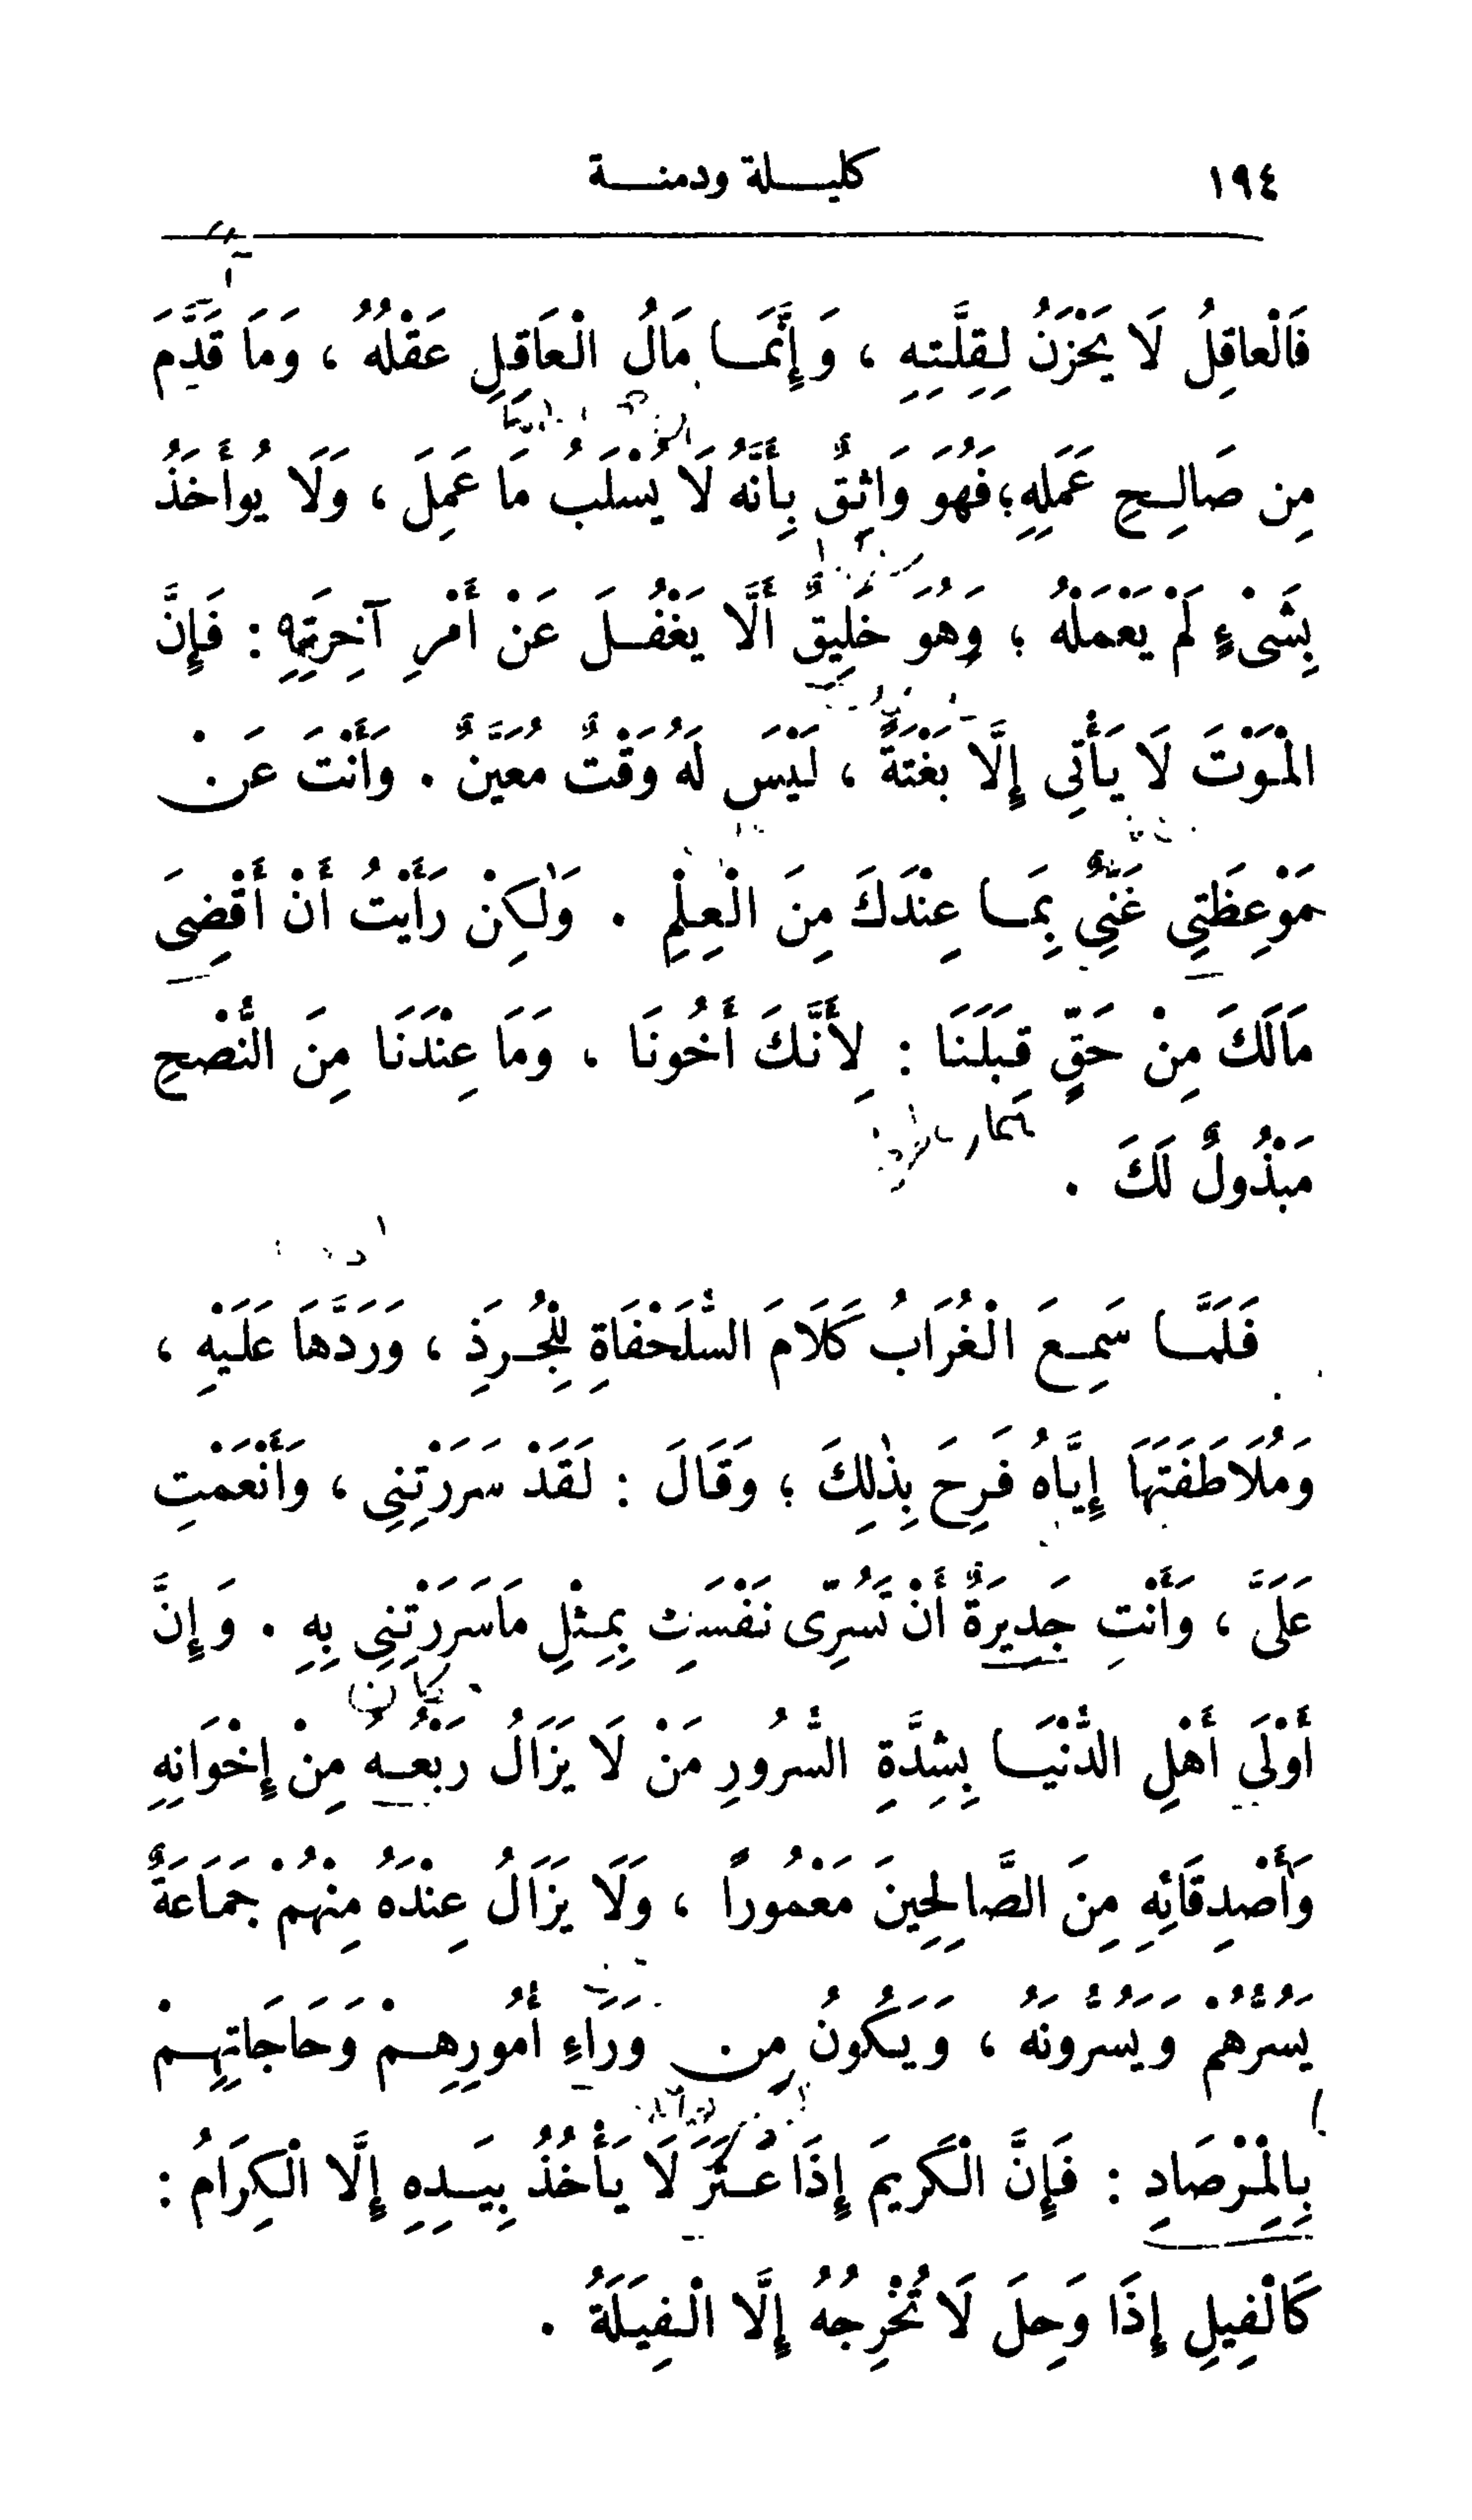 ١٩٤ كليلة ودمنة
فَالْعاقِلُ لَا يَحْزَنُ لِقِلَّتِهِ ، وَإِنَّمَا مَالُ الْعَاقِلِ عَقْلُهُ ، وَمَا قَدَّمَ
مِن صَالِحِ عَمَلِهِ ؛ فَهُوَ وَاثِقٌ بِأَنَّهُ لَا يُسْلَبُ مَا عَمِلَ ، وَلَا يُوأَخَذُ
بِشَىْءٍ لَمْ يَعْمَلْهُ ؛ وَهُوَ خَلِيقٌ أَلَّا يَغْفُلَ عَنْ أَمْرِ آخِرَتِهِ : فَإِنَّ
الْمَوْتَ لَا يَأْتِى إِلَّا بَغْتَةً ، لَيْسَ لَهُ وَقْتٌ مُعَيَّنٌ . وَأَنْتَ عَنْ
مَوْعِظَتِي غَنِيٌّ بِمَا عِنْدَكَ مِنَ الْعِلْمِ . وَلٰكِنْ رَأَيْتُ أَنْ أَقْضِىَ
مَالَكَ مِنْ حَقٍّ قِبَلَنَا : لِأَنَّكَ أَخُونَا ، وَمَا عِنْدَنَا مِنَ النُّصْحِ
مَبْذُولٌ لَكَ .
فَلَمَّا سَمِعَ الْغُرَابُ كَلَامَ السُّلَحْفَاةِ لِلْجُرَذِ ، وَرَدَّهَا عَلَيْهِ ،
وَمُلَاطَفَتَهَا إِيَّاهُ فَرِحَ بِذٰلِكَ ؛ وَقَالَ : لَقَدْ سَرَرْتِنِي ، وَأَنْعَمْتِ
عَلَىَّ ، وَأَنْتِ جَدِيرَةٌ أَنْ تَسُرِّى نَفْسَكِ بِمِثْلِ مَاسَرَرْتِنِي بِهِ . وَإِنَّ
أَوْلَى أَهْلِ الدُّنْيَا بِشِدَّةِ السُّرُورِ مَنْ لَا يَزَالُ رَبْعُهُ مِنْ إِخْوَانِهِ
وَأَصْدِقَائِهِ مِنَ الصَّالِحِينَ مَعْمُوراً ، وَلَا يَزَالُ عِنْدَهُ مِنْهُمْ جَمَاعَةٌ
يَسُرُّهُمْ وَيَسُرُّونَهُ ، وَيَكُونُ مِن وَرَاءِ أُمُورِهِمْ وَحَاجَاتِهِمْ
بِالْمِرْصَادِ : فَإِنَّ الْكَرِيمَ إِذَا عَثَرَ لَا يَأْخُذُ بِيَدِهِ إِلَّا الْكِرَامُ :
كَالْفِيلِ إِذَا وَحِلَ لَا تُخْرِجُهُ إِلَّا الْفِيَلَةُ .